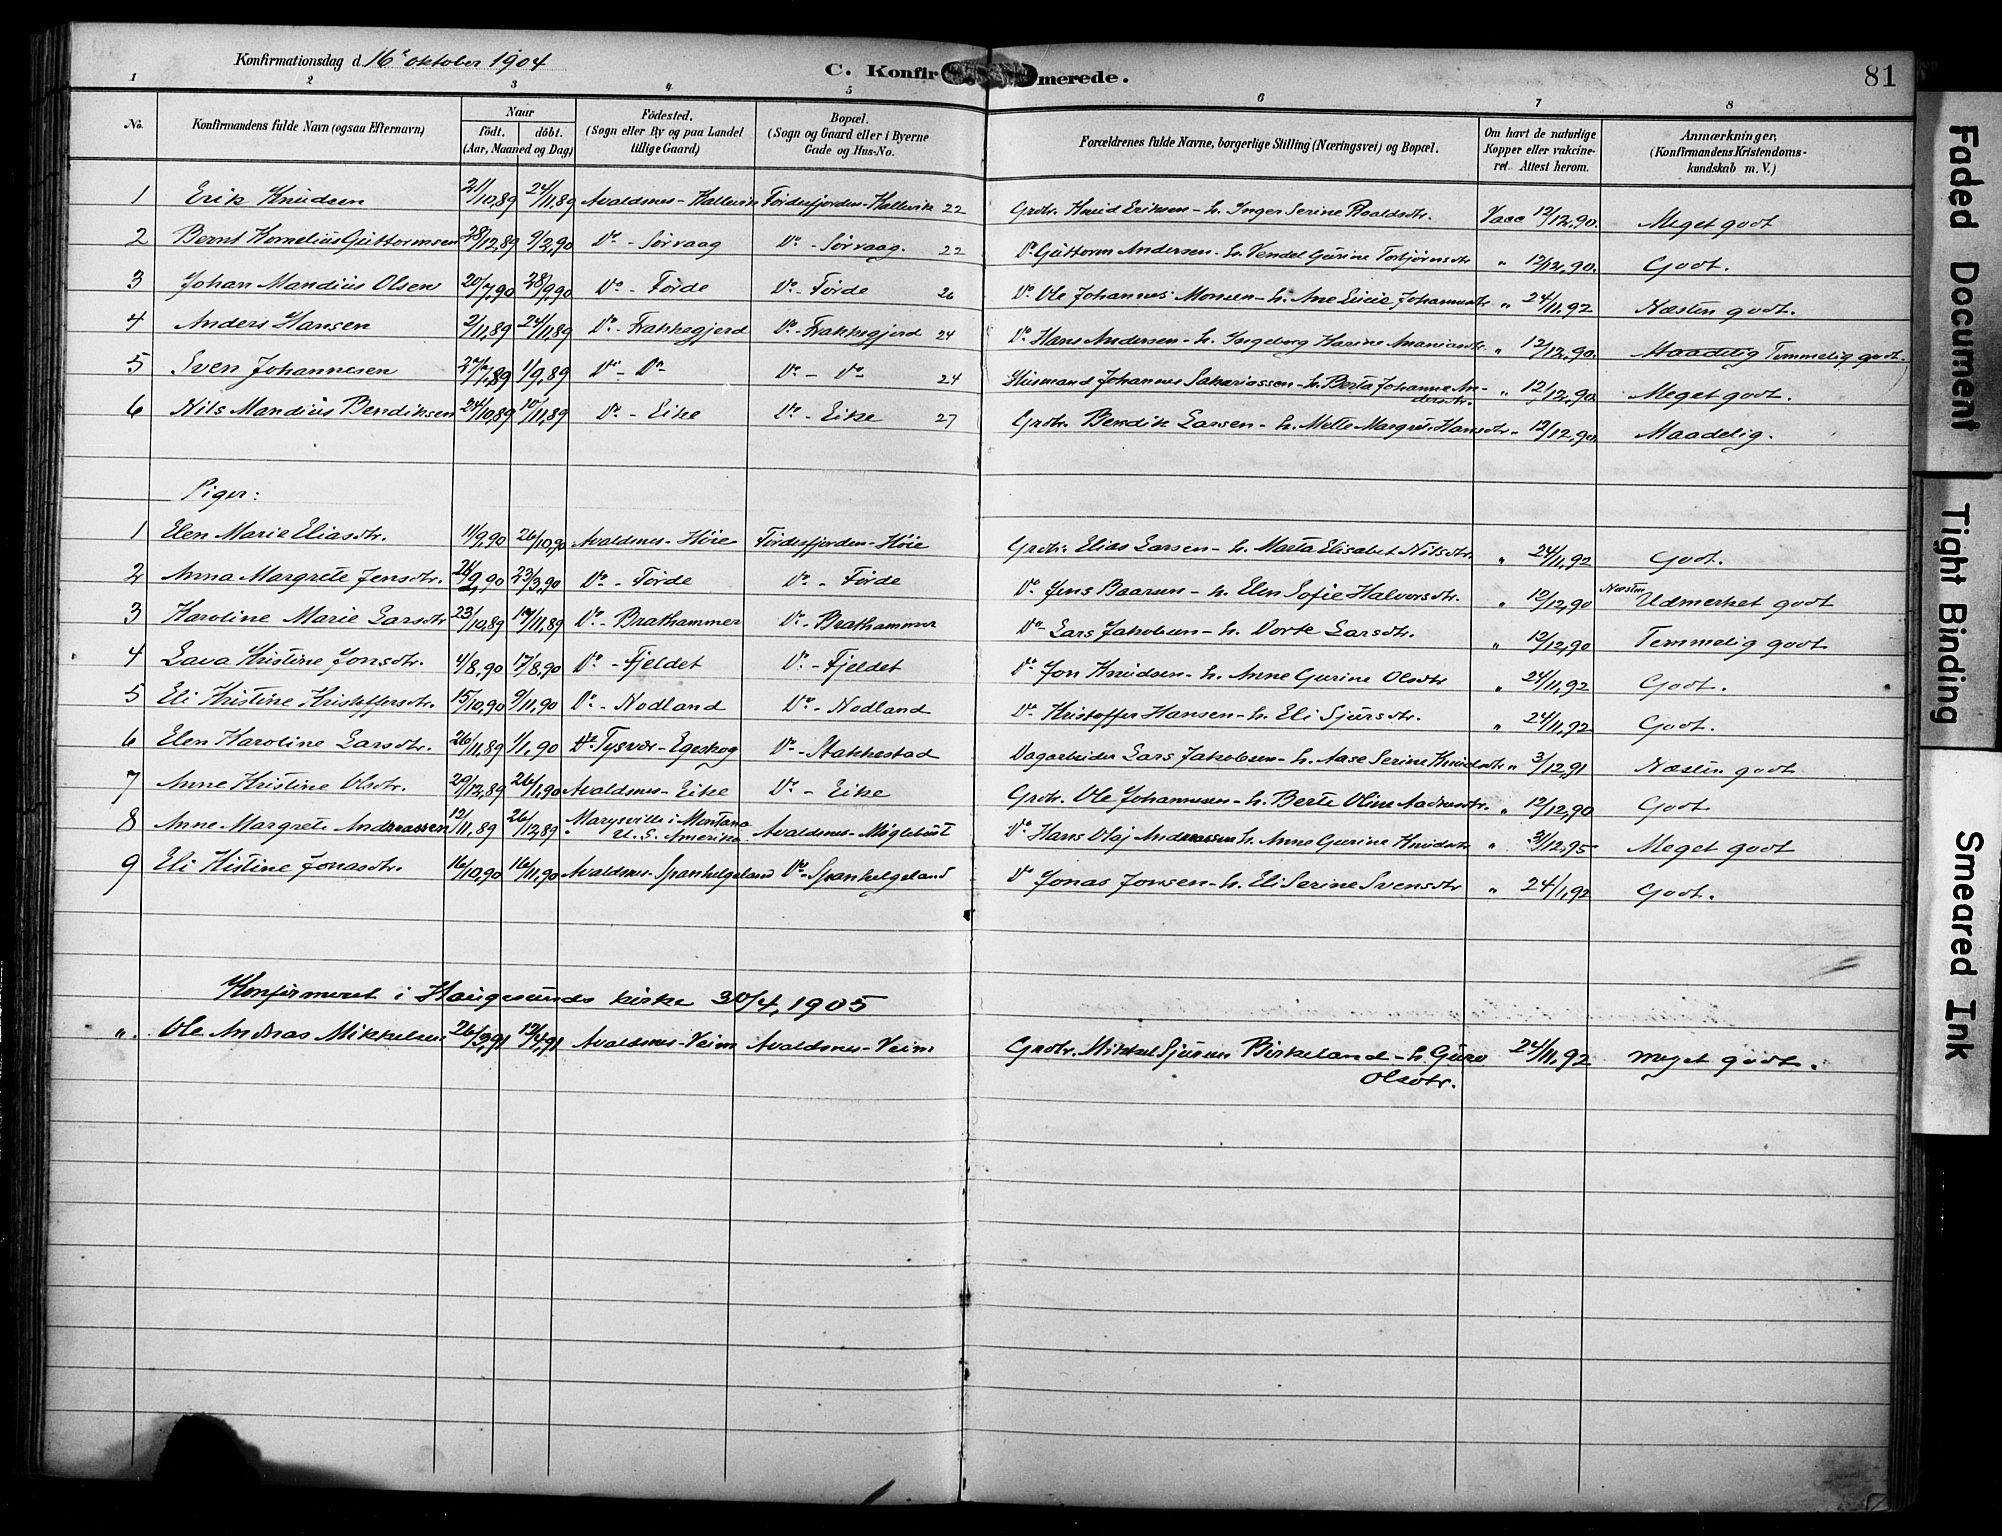 Konfirmationsdag d. 16de oktober 1904
C. Konfirmerede.
81
1 2 3 4 5 6 7 8
No.
Konfirmandens fulde Navn (ogsaa Efternavn)
Naar
födt. döbt.
(Aar, Maaned og Dag)
Födested.
(Sogn eller By og paa Landet
tillige Gaard)
Bopæl.
(Sogn og Gaard eller i Byerne
Gade og Hus-No.
Forældrenes fulde Navne, borgerlige Stilling (Næringsvei) og Bopæl.
Om havt de naturlige
Kopper eller vakcine-
ret. Attest herom.
Anmærkninger,
(Konfirmandens Kristendoms-
kundskab m. V.)
1 Erik Knudsen 21/10,89 24/11,89 Avaldsnes - Hallevik Førdesfjorden - Hallevik 22 Grdbr. Knud Eriksen - h. Inger Serine Roaldsdtr. Vacc 12/12,90. Meget godt
2 Bernt Kornelius Guttormsen 28/12,89 9/2,90 Do - Sørvaag Do - Sørvaag. 22 Do Guttorm Andersen - h. Vendel Gurine Torbjørnsdtr " 12/12,90. Godt.
3 Johan Mandius Olsen 20/7,90 28/9,90 Do - Førde Do - Førde 26 Do Ole Johannes Monsen - h. Ane Lucie Johannesdtr " 24/11,92 Næsten godt.
4 Anders Hansen 2/11,89 24/11,89 Do - Frakkegjerd Do - Frakkegjerd 24 Do Hans Andersen - h. Ingeborg Karine Ananiasdtr. " 12/12,90. Maadelig Temmelig godt.
5 Sven Johannesen 27/7,89 1/9,89 Do - Do Do - Do 24 Husmand Johannes Sakariassen - h. Berta Johanne An-
dersdtr. " 12/12,90. Meget godt.
6 Nils Mandius Bendiksen 24/10,89 10/11,89 Do - Eike Do - Eike 27 Grdbr. Bendik Larsen - h. Mette Margrete Hansdtr " 12/12,90. Maadelig.
Piger:
1 Elen Marie Eliasdtr. 11/9,90 26/10,90 Avaldsnes - Høie Førdesfjorden - Høie Grdbr. Elias Larsen - h. Marta Elisabet Nilsdtr. " 24/11,92 Godt.
2 Anna Margrete Jensdtr. 24/2,90 23/3,90 Do - Førde Do - Førde Do Jens Baarsen - h. Elen Sofie Halvorsdtr. " 12/12,90 Næsten Udmerket godt
3 Karoline Marie Larsdtr 23/10,89 17/11,89 Do - Brathammer Do - Brathammer Do Lars Jakobsen - h. Dorte Larsdtr. " 12/12,90 Temmelig godt
4 Lava Kristine Jonsdtr. 4/8,90 17/8,90 Do - Fjeldet Do - Fjeldet Do Jon Knudsen - h. Anne Gurine Olsdtr " 24/11,92 Godt.
5 Eli Kristine Kristoffersdtr. 15/10,90 9/11,90 Do - Nodland Do - Nodland Do Kristoffer Hansen - h. Eli Sjursdtr. " 24/11,92 Godt.
6 Elen Karoline Larsdtr. 26/11,89 1/1,90 Tysvær - Egeskog Do - Stakkestad Dagarbeider Lars Jakobsen - h. Aase Serine Knudsdtr " 3/12,91 Næsten godt
7 Anne Kristine Olsdtr. 29/12,89 26/1,90 Avaldsnes - Eike Do - Eike Grdbr. Ole Johannesen - h. Berte Oline Andreasdtr. " 12/12,90 Godt
8 Anne Margrete Andreassen 12/11,89 26/12,89 Marysville i Montana
U. S. Amerika. Avaldsnes - Møglebust Do Hans Olaj Andreassen h. Anne Gurine Knudsdtr " 3/12,95 Meget godt
9 Eli Kistine Jonasdtr. 16/10,90 16/11,90 Avaldsnes - Spanhelgeland Do - Spanhelgeland Do Jonas Jonsen - h. Eli Serine Svensdtr " 24/1,92 Godt.
Konfirmeret i Haugesunds kirke 30/4, 1905
". Ole Andreas Mikkelsen 26/3,91 12/4,91 Avaldsnes - Veim Avaldsnes - Veim Grdbr. Mikkel Sjursen Birkeland - h. Guro
Olsdtr. 24/11,92 Meget godt.
Faded Document
Tight Binding
Smeared Ink